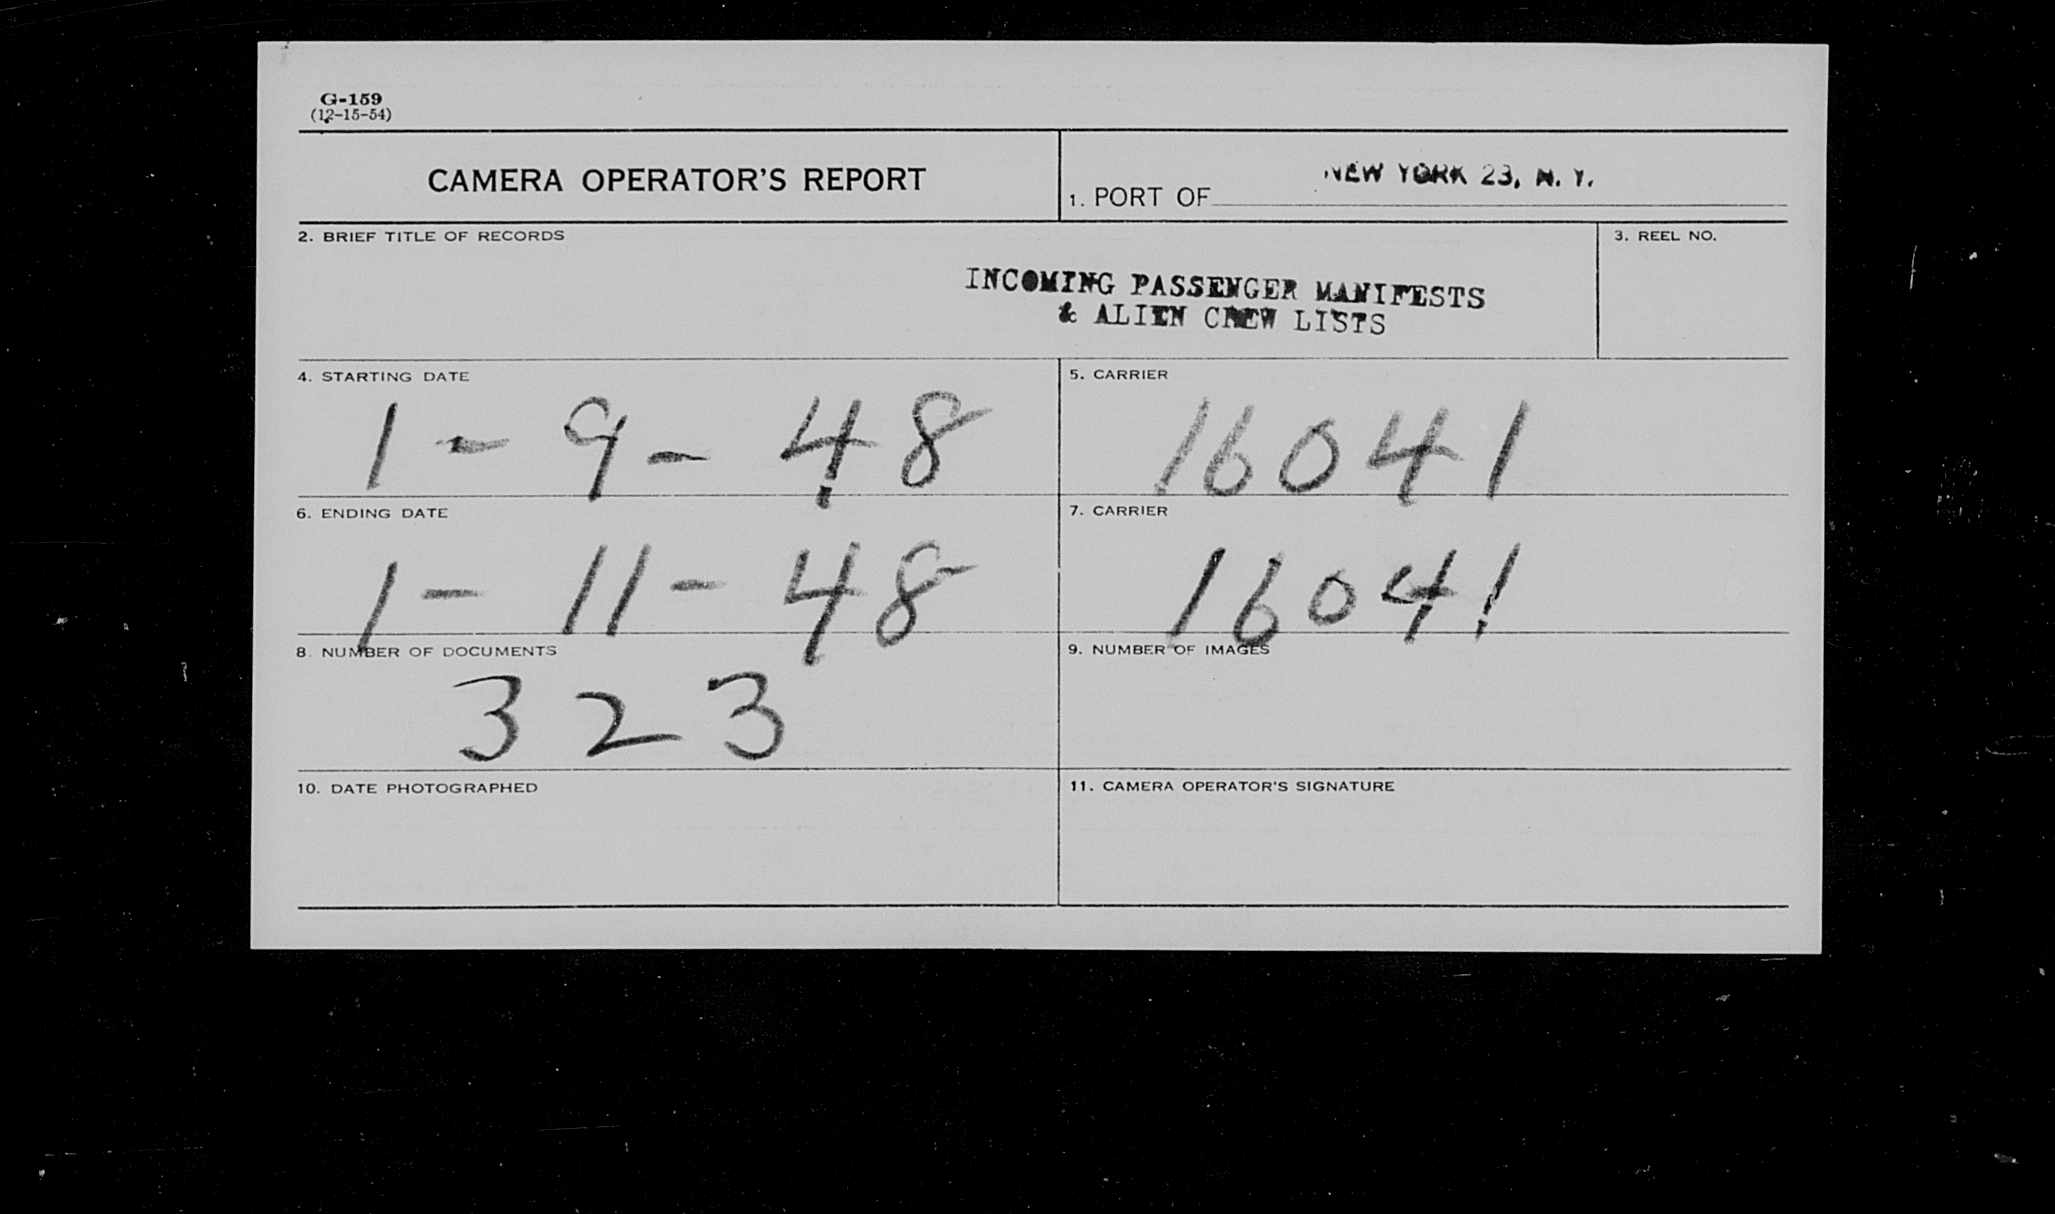 G-159
(12-15-54)
CAMERA OPERATOR'S REPORT
1. PORT OF NEW YORK 23, N. Y.
2. BRIEF TITLE OF RECORDS
INCOMING PASSENGER MANIFESTS
& ALIEN CREW LISTS
3. REEL NO.
4. STARTING DATE
1-9-48
5. CARRIER
16041
6. ENDING DATE
1-11-48
7. CARRIER
16041
8. NUMBER OF DOCUMENTS
323
9. NUMBER OF IMAGES
10. DATE PHOTOGRAPHED
11. CAMERA OPERATOR'S SIGNATURE